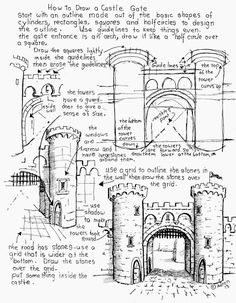 How to Draw a Castle Gate
Start with an outline made out of the basic shapes of
cylinders, rectangles, squares and half circles to design
the outline. Use guidelines to keep things even.
the gate entrance is an arch, draw it like a half circle over
a square.
Draw the squares lightly
inside the guidelines
then erase the guidelines
the towers
have a guard
door to give a
sense of size.
inside
wall
guidelines
the top
of the
tower
curves up
the bottom
of the
tower
curves
down
the towers
lower at the bottom
the
windows
are
narrow and
have
around
them
use a grid to outline the stones in
the wall then draw the stones over
the grid.
use
shadow
to
make
the
towers look
round.
the road has stones-use a
grid that is wider at the
bottom. Draw the stones
over the grid.
put something inside the
castle.